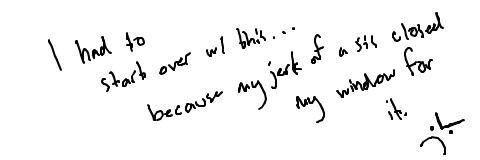 I had to
start over w/ this...
because my jerk of a sis closed
my window for
it.